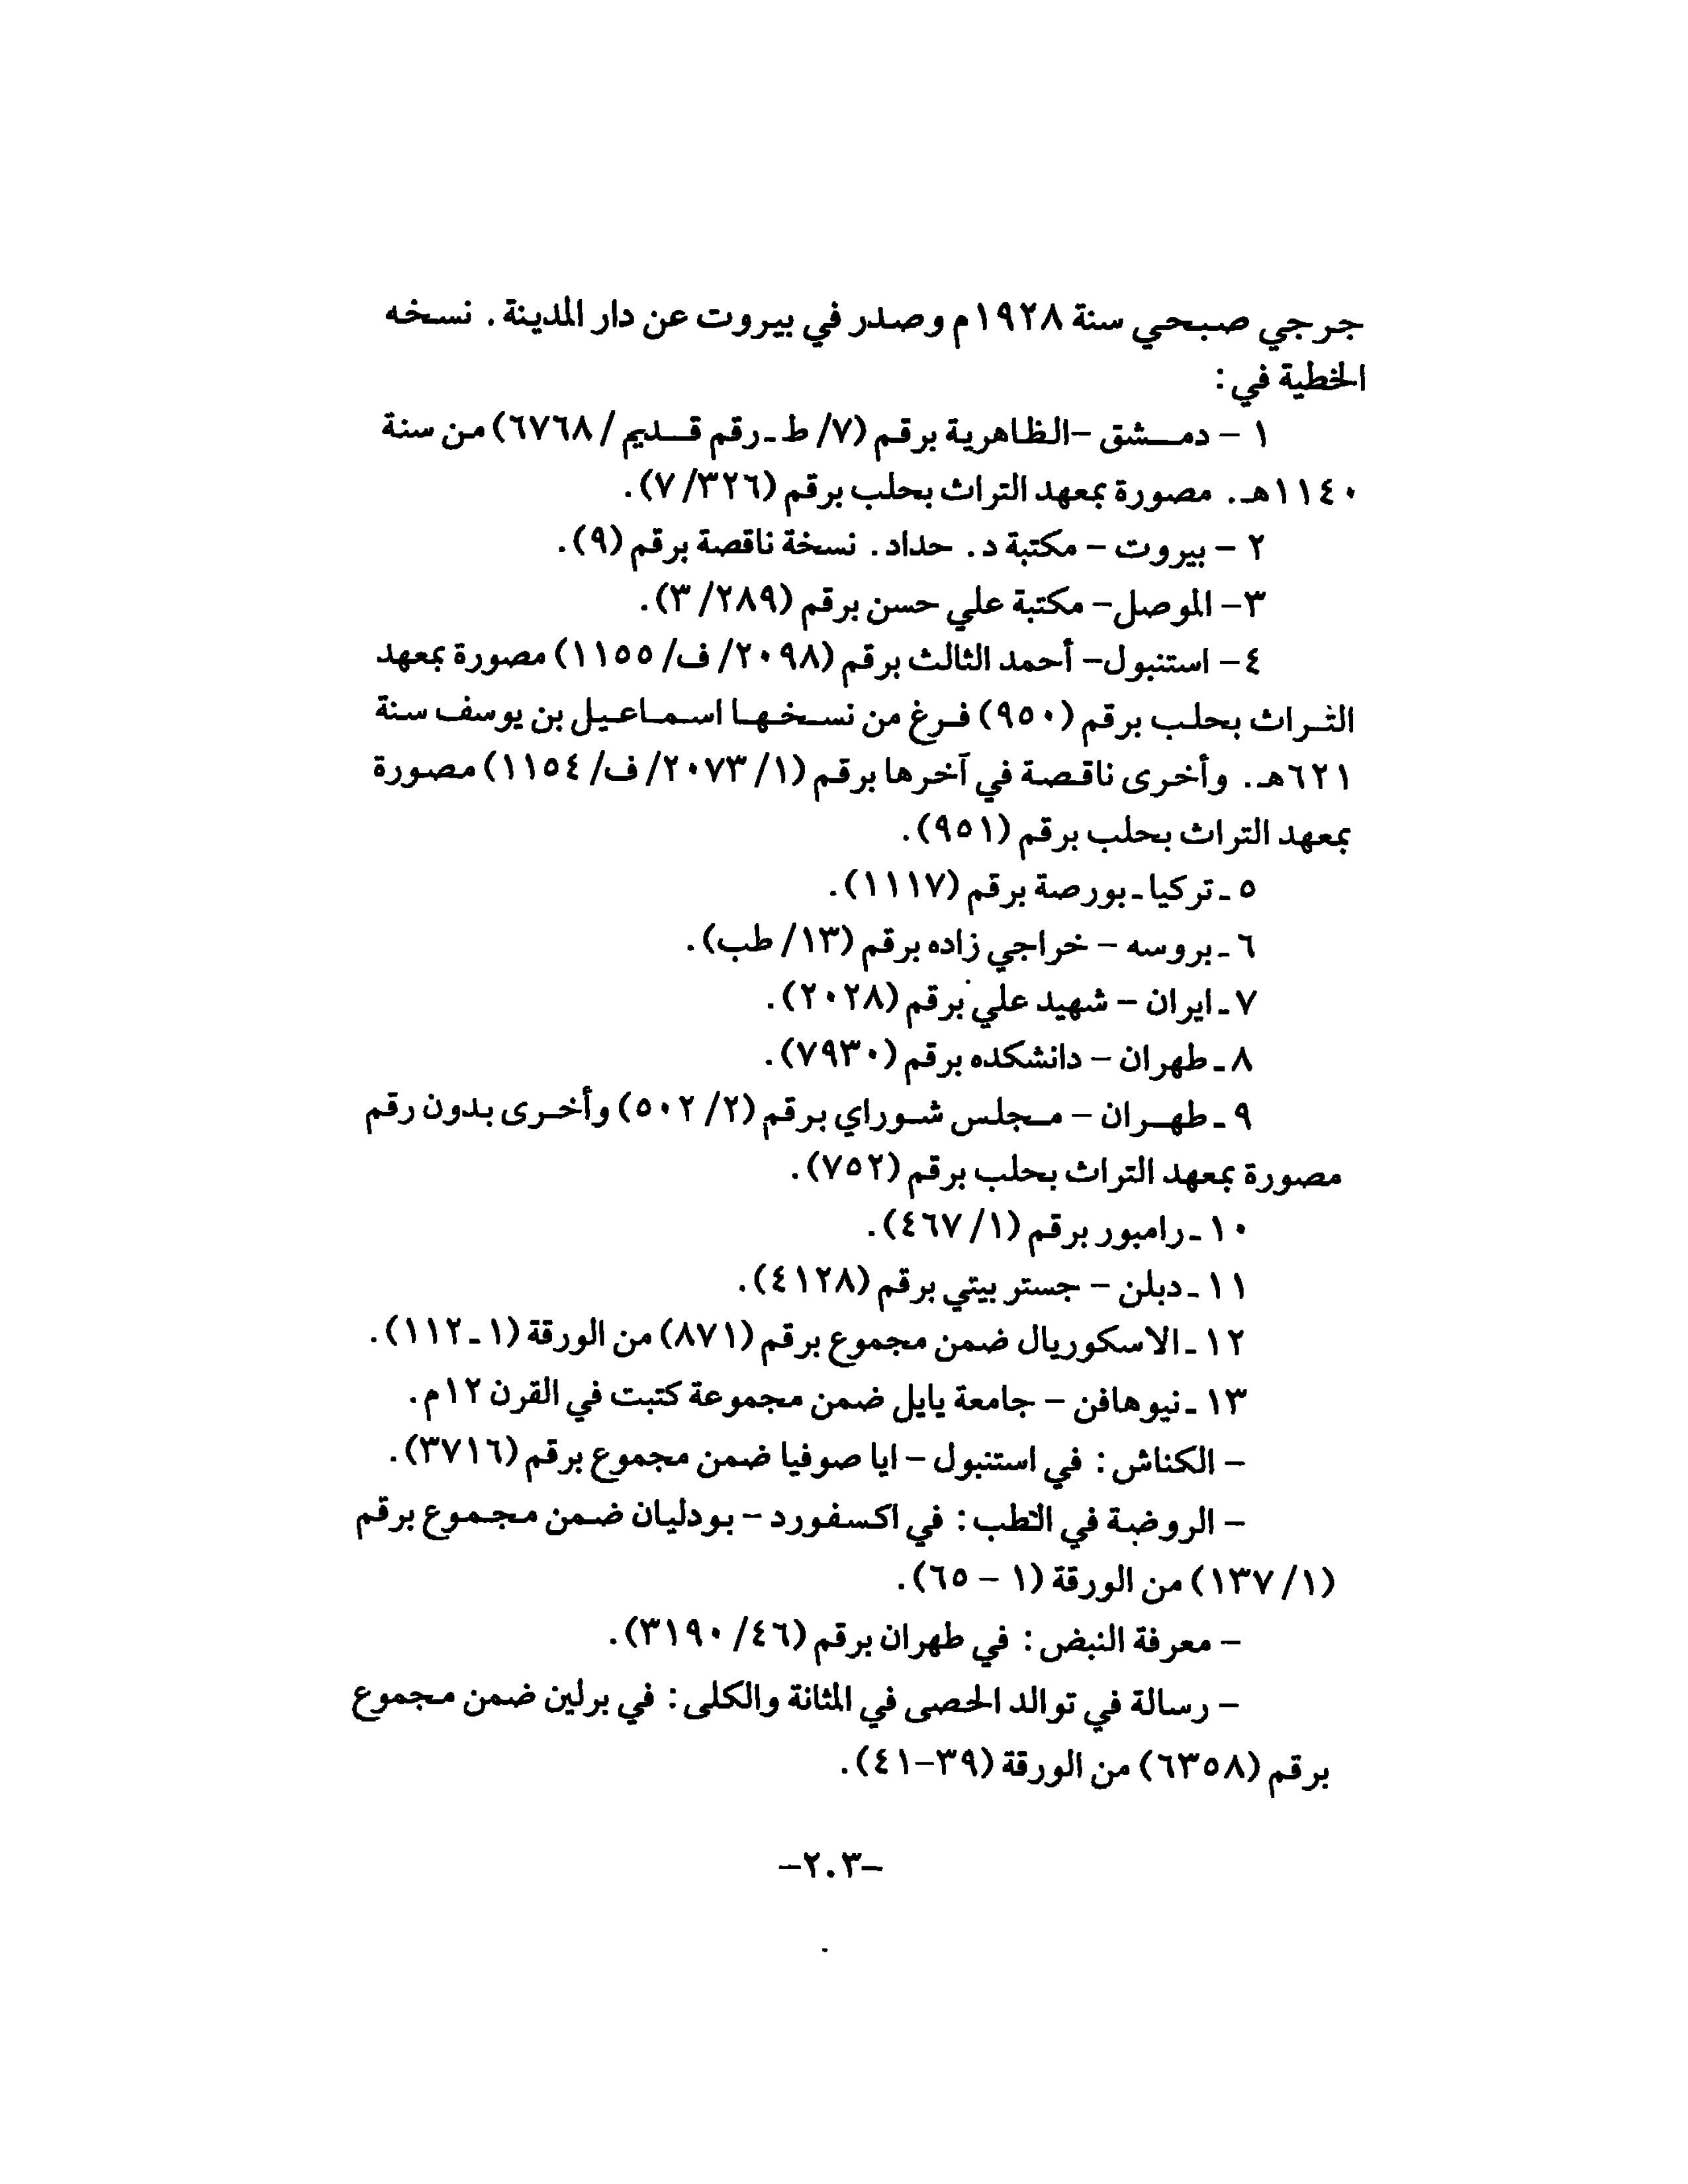 جرجي صبحي سنة ١٩٢٨م وصدر في بيروت عن دار المدينة. نسخه
الخطية في:
١ - دمشق -الظاهرية برقم (٧/ ط - رقم قديم / ٦٧٦٨) من سنة
١١٤٠هـ. مصورة بمعهد التراث بحلب برقم (٣٢٦/ ٧).
٢ - بيروت - مكتبة د. حداد. نسخة ناقصة برقم (٩).
٣- الموصل- مكتبة علي حسن برقم (٢٨٩/ ٣).
٤- استنبول- أحمد الثالث برقم (٢٠٩٨/ ف/ ١١٥٥) مصورة بمعهد
التراث بحلب برقم (٩٥٠) فرغ من نسخها اسماعيل بن يوسف سنة
٦٢١هـ. وأخرى ناقصة في آخرها برقم (١/ ٢٠٧٣/ ف/ ١١٥٤) مصورة
بمعهد التراث بحلب برقم (٩٥١).
٥ - تركيا - بورصة برقم (١١١٧).
٦ - بروسه - خراجي زاده برقم (١٣/ طب).
٧ - ايران - شهيد علي برقم (٢٠٢٨).
٨ - طهران - دانشكده برقم (٧٩٣٠).
٩ - طهران - مجلس شوراي برقم (٢/ ٥٠٢) وأخرى بدون رقم
مصورة بمعهد التراث بحلب برقم (٧٥٢).
١٠ - رامبور برقم (١/ ٤٦٧).
١١ - دبلن - جستر بيتي برقم (٤١٢٨).
١٢ - الاسكوريال ضمن مجموع برقم (٨٧١) من الورقة (١ - ١١٢).
١٣ - نيوهافن - جامعة يايل ضمن مجموعة كتبت في القرن ١٢م.
- الكناش: في استنبول - ايا صوفيا ضمن مجموع برقم (٣٧١٦).
- الروضة في الطب: في اكسفورد - بودليان ضمن مجموع برقم
(١/ ١٣٧) من الورقة (١ - ٦٥).
- معرفة النبض: في طهران برقم (٤٦/ ٣١٩٠).
- رسالة في توالد الحصى في المثانة والكلى: في برلين ضمن مجموع
برقم (٦٣٥٨) من الورقة (٣٩-٤١).
-٢٠٣-